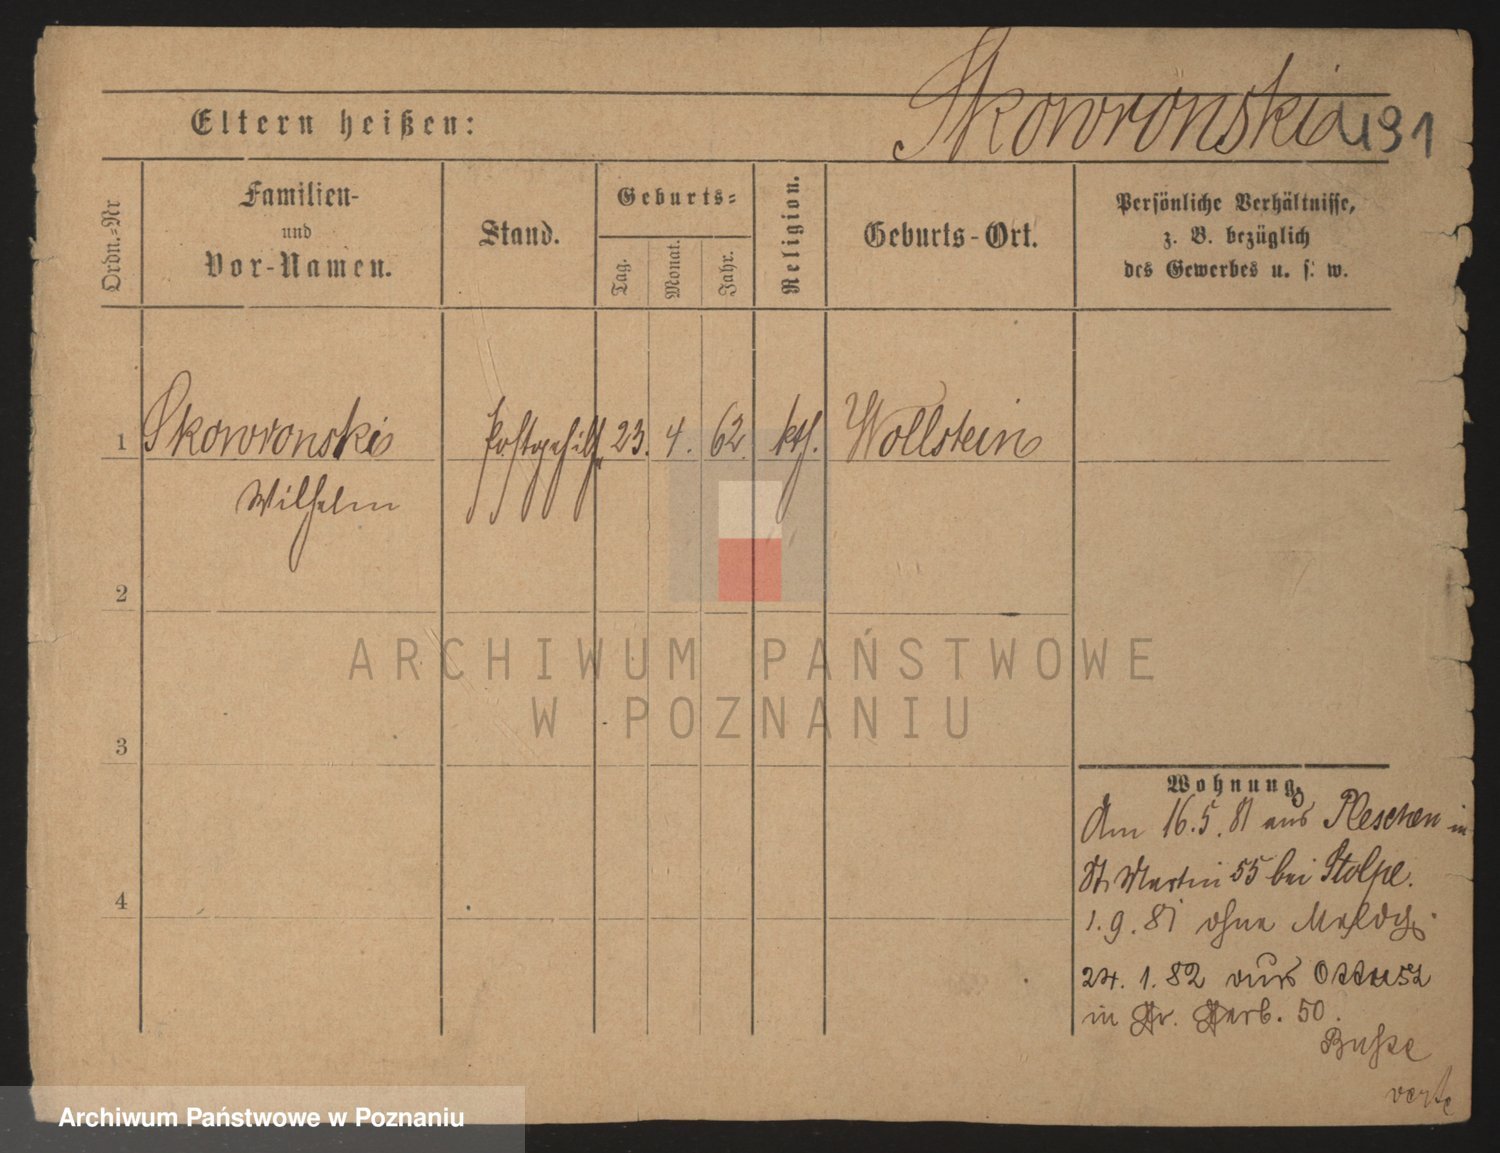 Skowronski 491
Eltern heißen:
Ordn.-Nr
Familien-
und
Vor-Namen.
Stand.
Geburts-
Tag.
Monat.
Jahr.
Religion.
Geburts-Ort.
Persönliche Verhältnisse,
z. B. bezüglich
des Gewerbes u. s. w.
1 Skowronski Postgehilfe 23. 4. 62. kth. Wollstein
Wilhelm
2
3
4
Wohnung.
Am 16.5.81 aus Pleschen in
St Martin 55 bei Stolpe.
1.9.81 ohne Meldg.
24.1.82 aus
in Gr. Gerb. 50.
verte
ARCHIWUM PAŃSTWOWE
W POZNANIU
Archiwum Państwowe w Poznaniu